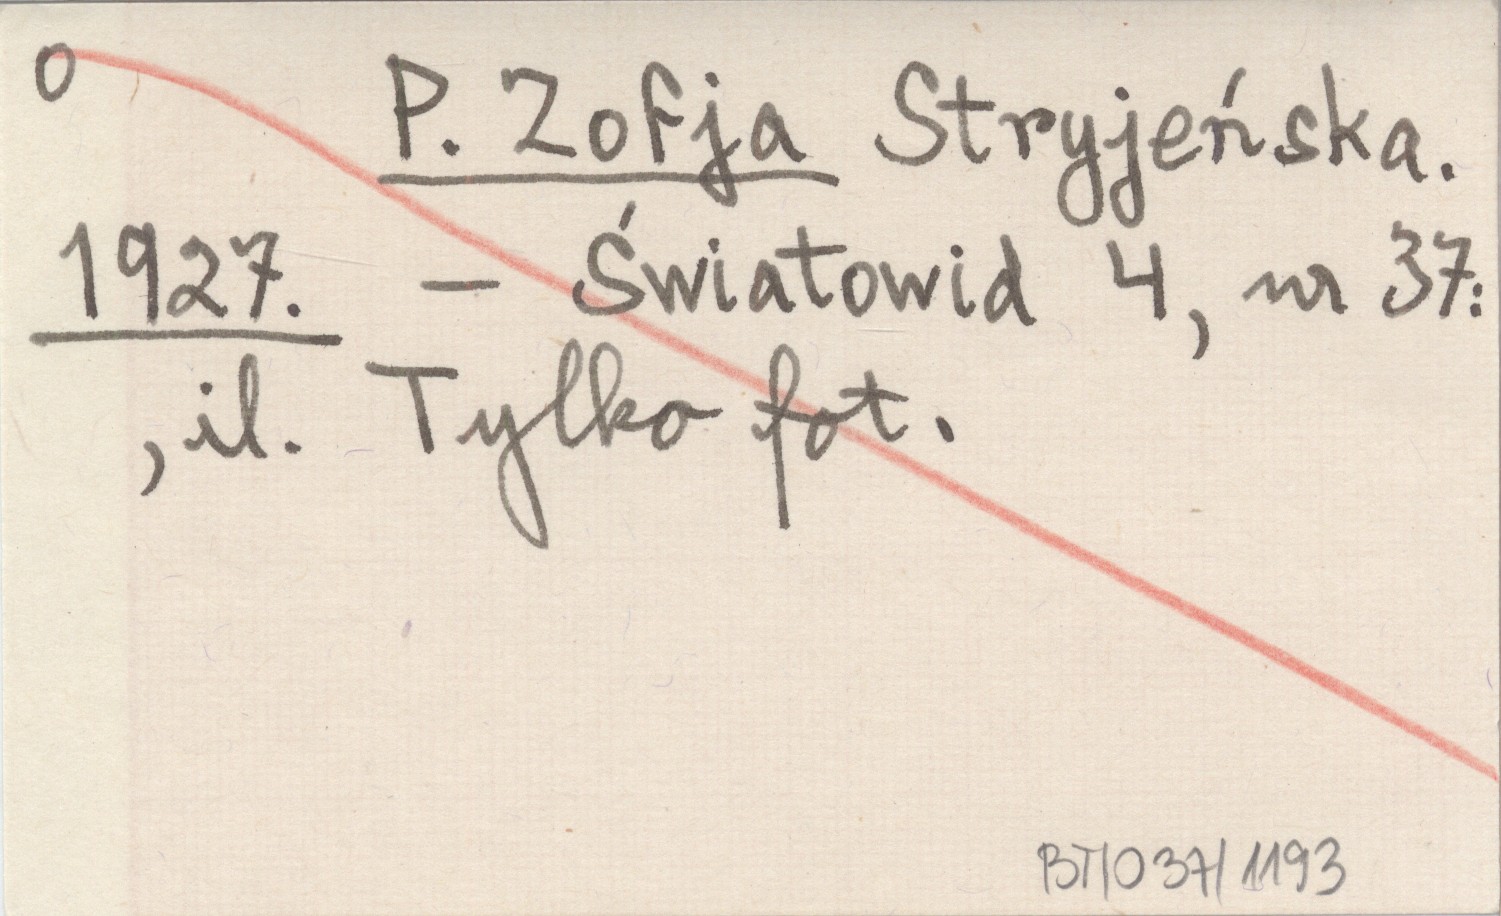 0 P. Zofja Stryjeńska.
1927. – Światowid 4, nr 37:
, il. Tylko fot.
BT/037/1193